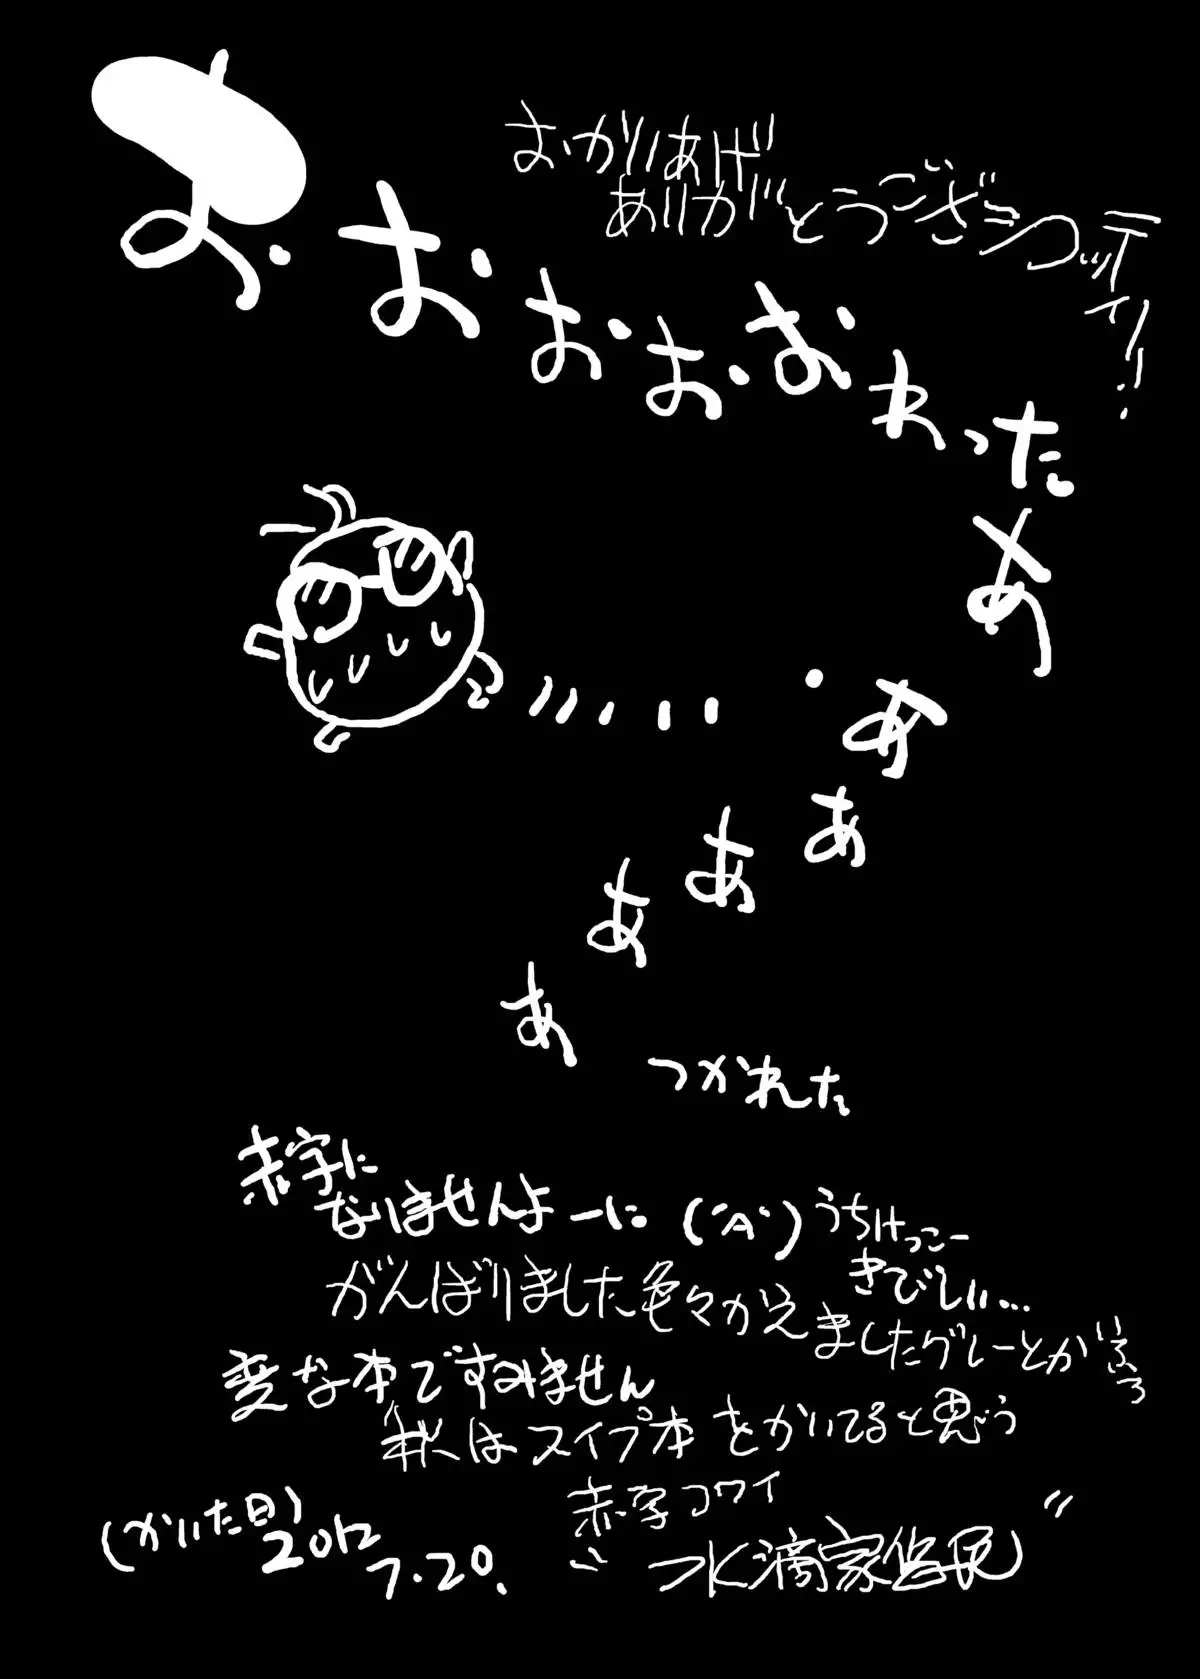 おかいあげ
ありがとうござミンコッティン!!
お・お・お・お・おわった
あ
あ
あ
あ
あ
あ
つかれた
赤字に
なりませんよーに ( ゚A゚ ) うちけっこー
きびしい…
がんばりました色々かえましたグレーとか
変な本ですみません
秋はスイプ本をかいてると思う
赤字コワイ
(かいた日)
2012
7.20.
水滴家住民